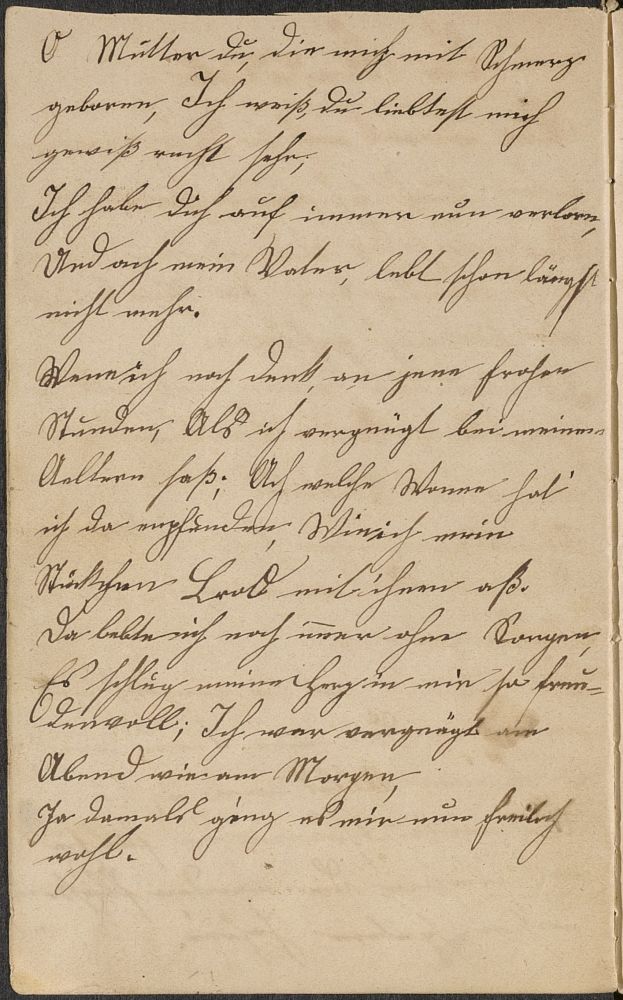 O Mutter du, die mich mit Schmerz
geboren, Ich weiß, du liebtest mich
gewiß recht sehr;
Ich habe dich auf immer nun verlorn,
Und ach mein Vater, lebt schon längst
nicht mehr.
Wenn ich noch denk, an jene frohen
Stunden, Als ich vergnügt bei meinen
Aeltern saß; Ach welche Wonne hat'
ich da empfunden, Wie ich mein
Stückchen Brod mit ihnen aß.
Da lebte ich noch immer ohne Sorgen,
Es schlug meine Herz in mir so freu-
denvoll; Ich war vergnügt am
Abend wie am Morgen,
Ja damals ging es mir nun freilich
wohl.